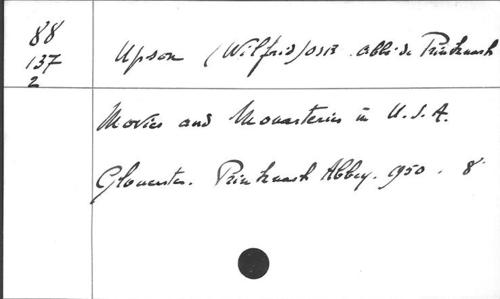 88
137
2
Upson (Wilfrid) OSB. abbé de Prinknash
Movies and Monasteries in U.S.A.
Gloucester. Prinknash Abbey. 1950. 8°